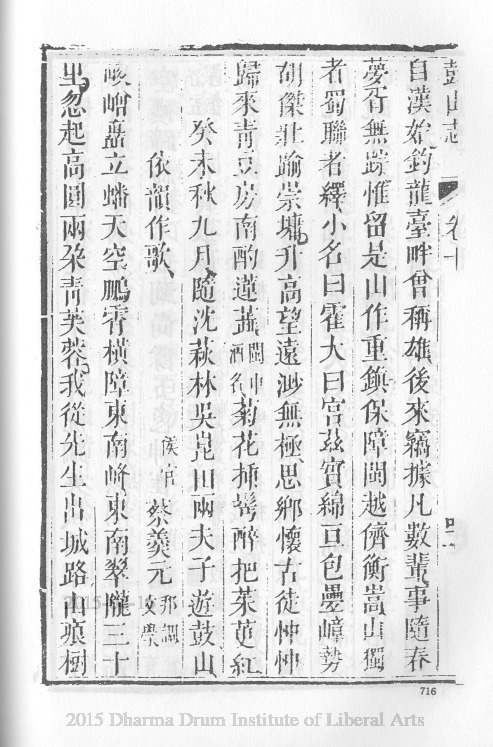 鼓山志 卷十
自漢始釣龍臺畔曾稱雄後來竊據凡數輩事隨春
夢杳無踪惟留是山作重鎮保障閩越儕衡嵩山獨
者蜀聯者繹小名曰霍大曰宮茲實綿亘包疊嶂勢
胡傑壯踰崇墉升高望遠渺無極思鄉懷古徒忡忡
歸來青豆房南酌蓮蕊閩中酒名菊花插髻醉把茱萸紅
癸未秋九月隨沈萩林吳崑田兩夫子遊鼓山
依韻作歌 侯官 蔡羹元 邦調 文學
峻嶒矗立蟠天空鵬霄橫障東南崎東南翠隴三十
里忽起高圓兩朶青芙蓉我從先生出城路山頑樹
716
2015 Dharma Drum Institute of Liberal Arts